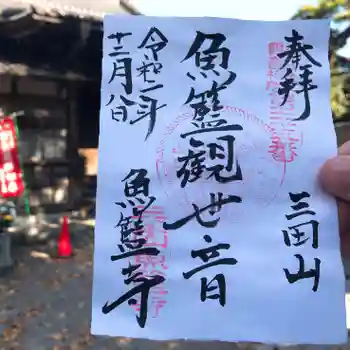 奉拝
三田山
魚籃観世音
魚籃寺
令和一年
十二月八日